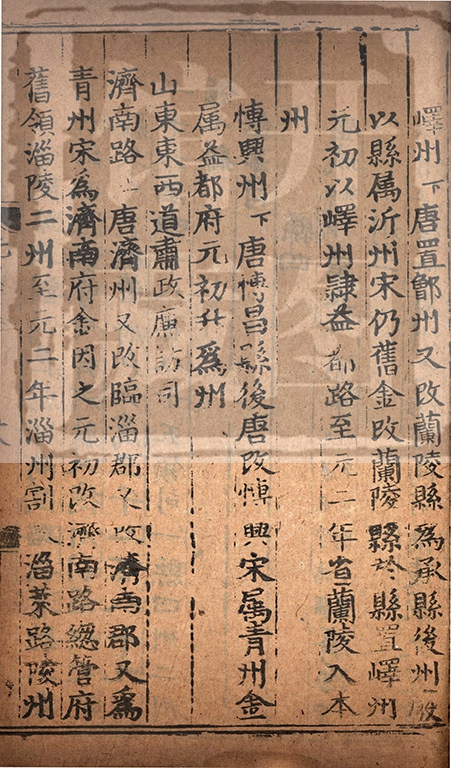 嶧州下唐置鄫州又改蘭陵縣為承縣後州廢
以縣属沂州宋仍舊金改蘭陵縣於縣置嶧州
元初以嶧州隷益都路至元二年省蘭陵入本
州
愽興州下唐愽昌縣後唐改愽興宋属青州金
属益都府元初升為州
山東東西道肅政廉訪司
濟南路上唐濟州又改臨淄郡又改濟南郡又為
青州宋為濟南府金因之元初改濟南路總管府
舊領淄陵二州至元二年淄州割入淄萊路陵州